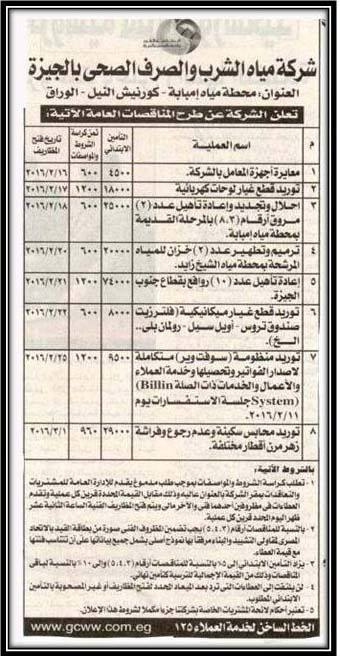 شركة مياه الشرب والصرف الصحى بالجيزة
العنوان: محطة مياه إمبابة - كورنيش النيل - الوراق
تعلن الشركة عن طرح المناقصات العامة الآتية:
م اسم العملية التأمين الابتدائى ثمن كراسة الشروط والمواصفات تاريخ فتح المظاريف
١ معايرة أجهزة المعامل بالشركة. ٤٥٠٠ ٦٠٠ ٢٠١٦/٢/١٦
٢ توريد قطع غيار لوحات كهربائية ١٨٠٠٠ ١٢٠٠ ٢٠١٦/٢/١٧
٣ احلال وتجديد وإعادة تأهيل عدد (٢) ٢٥٠٠٠ ٦٠٠ ٢٠١٦/٢/١٨
مروق أرقام (٨،٣) بالمرحلة القديمة
بمحطة مياه إمبابة.
٤ ترميم وتطهير عدد (٢) خزان للمياه ٢٠٠٠٠ ٦٠٠ ٢٠١٦/٢/٢٠
المرشحة بمحطة مياه الشيخ زايد.
٥ إعادة تأهيل عدد (١٠) روافع بقطاع جنوب ٧٤٠٠٠ ١٢٠٠ ٢٠١٦/٢/٢١
الجيزة.
٦ توريد قطع غيار ميكانيكية (فلتر زيت ٨٠٠٠ ٦٠٠ ٢٠١٦/٢/٢٢
صندوق تروس - أويل سيل - رولمان بلى..
الخ).
٧ توريد منظومة (سوفت وير) متكاملة ٩٥٠٠ ١٢٠٠ ٢٠١٦/٢/٢٥
لاصدار الفواتير وتحصيلها وخدمة العملاء
والأعمال والخدمات ذات الصلة (Billin
System) جلسة الاستفسارات يوم
٢٠١٦/٢/١١.
٨ توريد محابس سكينة وعدم رجوع وفراشة ٢٩٠٠٠ ٩٦٠ ٢٠١٦/٣/١
زهر من أقطار مختلفة.
بالشروط الآتية:
١- تطلب كراسة الشروط والمواصفات بموجب طلب مدموغ يقدم للإدارة العامة للمشتريات
والتعاقدات بمقر الشركة بالعنوان عاليه وذلك مقابل القيمة المحددة قرين كل عملية وتقدم
العطاءات فى مظروفين أحدهما فنى والآخر مالى ويتم فتح المظاريف الفنية الساعة الثانية عشر
ظهر اليوم المحدد قرين كل عملية.
٢- بالنسبة للمناقصات أرقام (٥،٤،٣) يجب تضمين المظروف الفنى صورة من بطاقة القيد بالاتحاد
المصرى لمقاولى التشييد والبناء مرفقا بها نموذج أصلى يشمل جميع بياناتها على أن تتناسب فئتها
مع قيمة العطاء.
٣- يزاد التأمين الابتدائى إلى ٥٪ للمناقصات أرقام (٥،٤،٣) وإلى ١٠٪ بالنسبة لباقى
المناقصات وذلك من القيمة الإجمالية للترسية كتأمين نهائى.
٤- لن يلتفت إلى العطاءات التى ترد بعد الميعاد المحدد لفتح المظاريف أو غير المصحوبة بالتأمين
الابتدائى المطلوب.
٥- تعتبر أحكام لائحة المشتريات الخاصة بشركتنا جزءاً مكملاً لشروط هذا الإعلان.
الخط الساخن لخدمة العملاء ١٢٥ www.gcww.com.eg